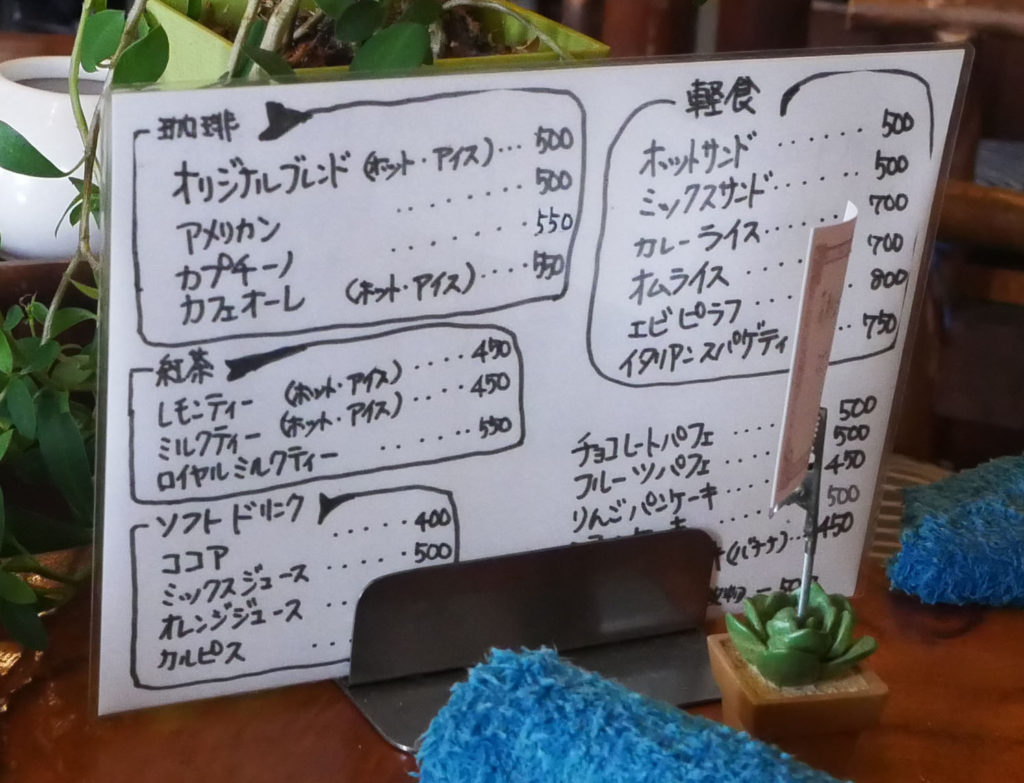 珈琲
オリジナルブレンド (ホット・アイス)… 500
アメリカン ‥‥‥ 500
カプチーノ ‥‥‥‥ 550
カフェオーレ (ホット・アイス)‥‥ 550
紅茶
レモンティー (ホット・アイス) ‥‥ 450
ミルクティー (ホット・アイス) ‥‥ 450
ロイヤルミルクティー ‥‥‥ 550
ソフトドリンク
ココア ‥‥‥ 400
ミックスジュース ‥‥ 500
オレンジジュース
カルピス
軽食
ホットサンド ‥‥‥ 500
ミックスサンド ‥‥‥ 500
カレーライス ‥‥ 700
オムライス ‥‥ 700
エビピラフ ‥‥ 800
イタリアンスパゲティ 750
チョコレートパフェ ‥‥ 500
フルーツパフェ ‥‥ 500
りんごパンケーキ 450
500
(バナナ)‥ 450